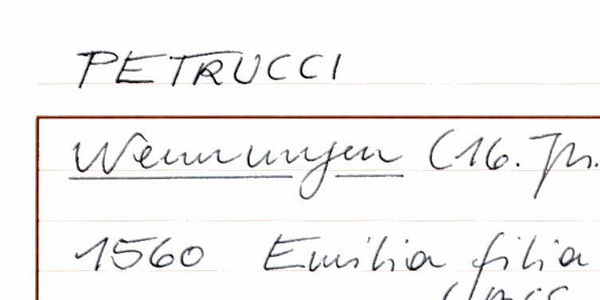 PETRUCCI
Wennungen (16. Jh.
1560 Emilia filia